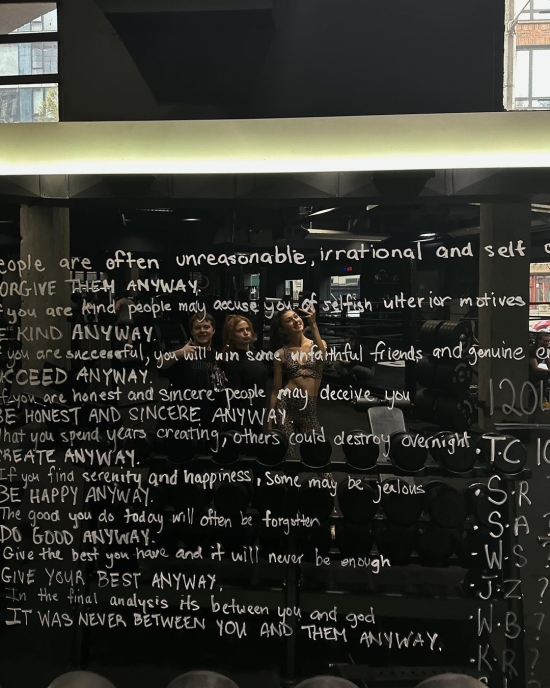 eople are often unreasonable, irrational and self c
ORGIVE THEM ANYWAY.
you are kind people may accuse you of selfish ulterior motives
E KIND ANYWAY.
you are successful, you will win some unfaithful friends and genuine en
CCEED ANYWAY.
If you are honest and sincere people may deceive you
BE HONEST AND SINCERE ANYWAY
hat you spend years creating, others could destroy overnight
CREATE ANYWAY.
If you find serenity and happiness, some may be jealous
BE HAPPY ANYWAY.
The good you do today will often be forgotten
DO GOOD ANYWAY.
Give the best you have and it will never be enough
GIVE YOUR BEST ANYWAY.
In the final analysis its between you and god
IT WAS NEVER BETWEEN YOU AND THEM ANYWAY.
120
·T·C 10
·S·R
·S·A ?
·W·S ?
·J·Z ?
·W·B ?
·K·R ?